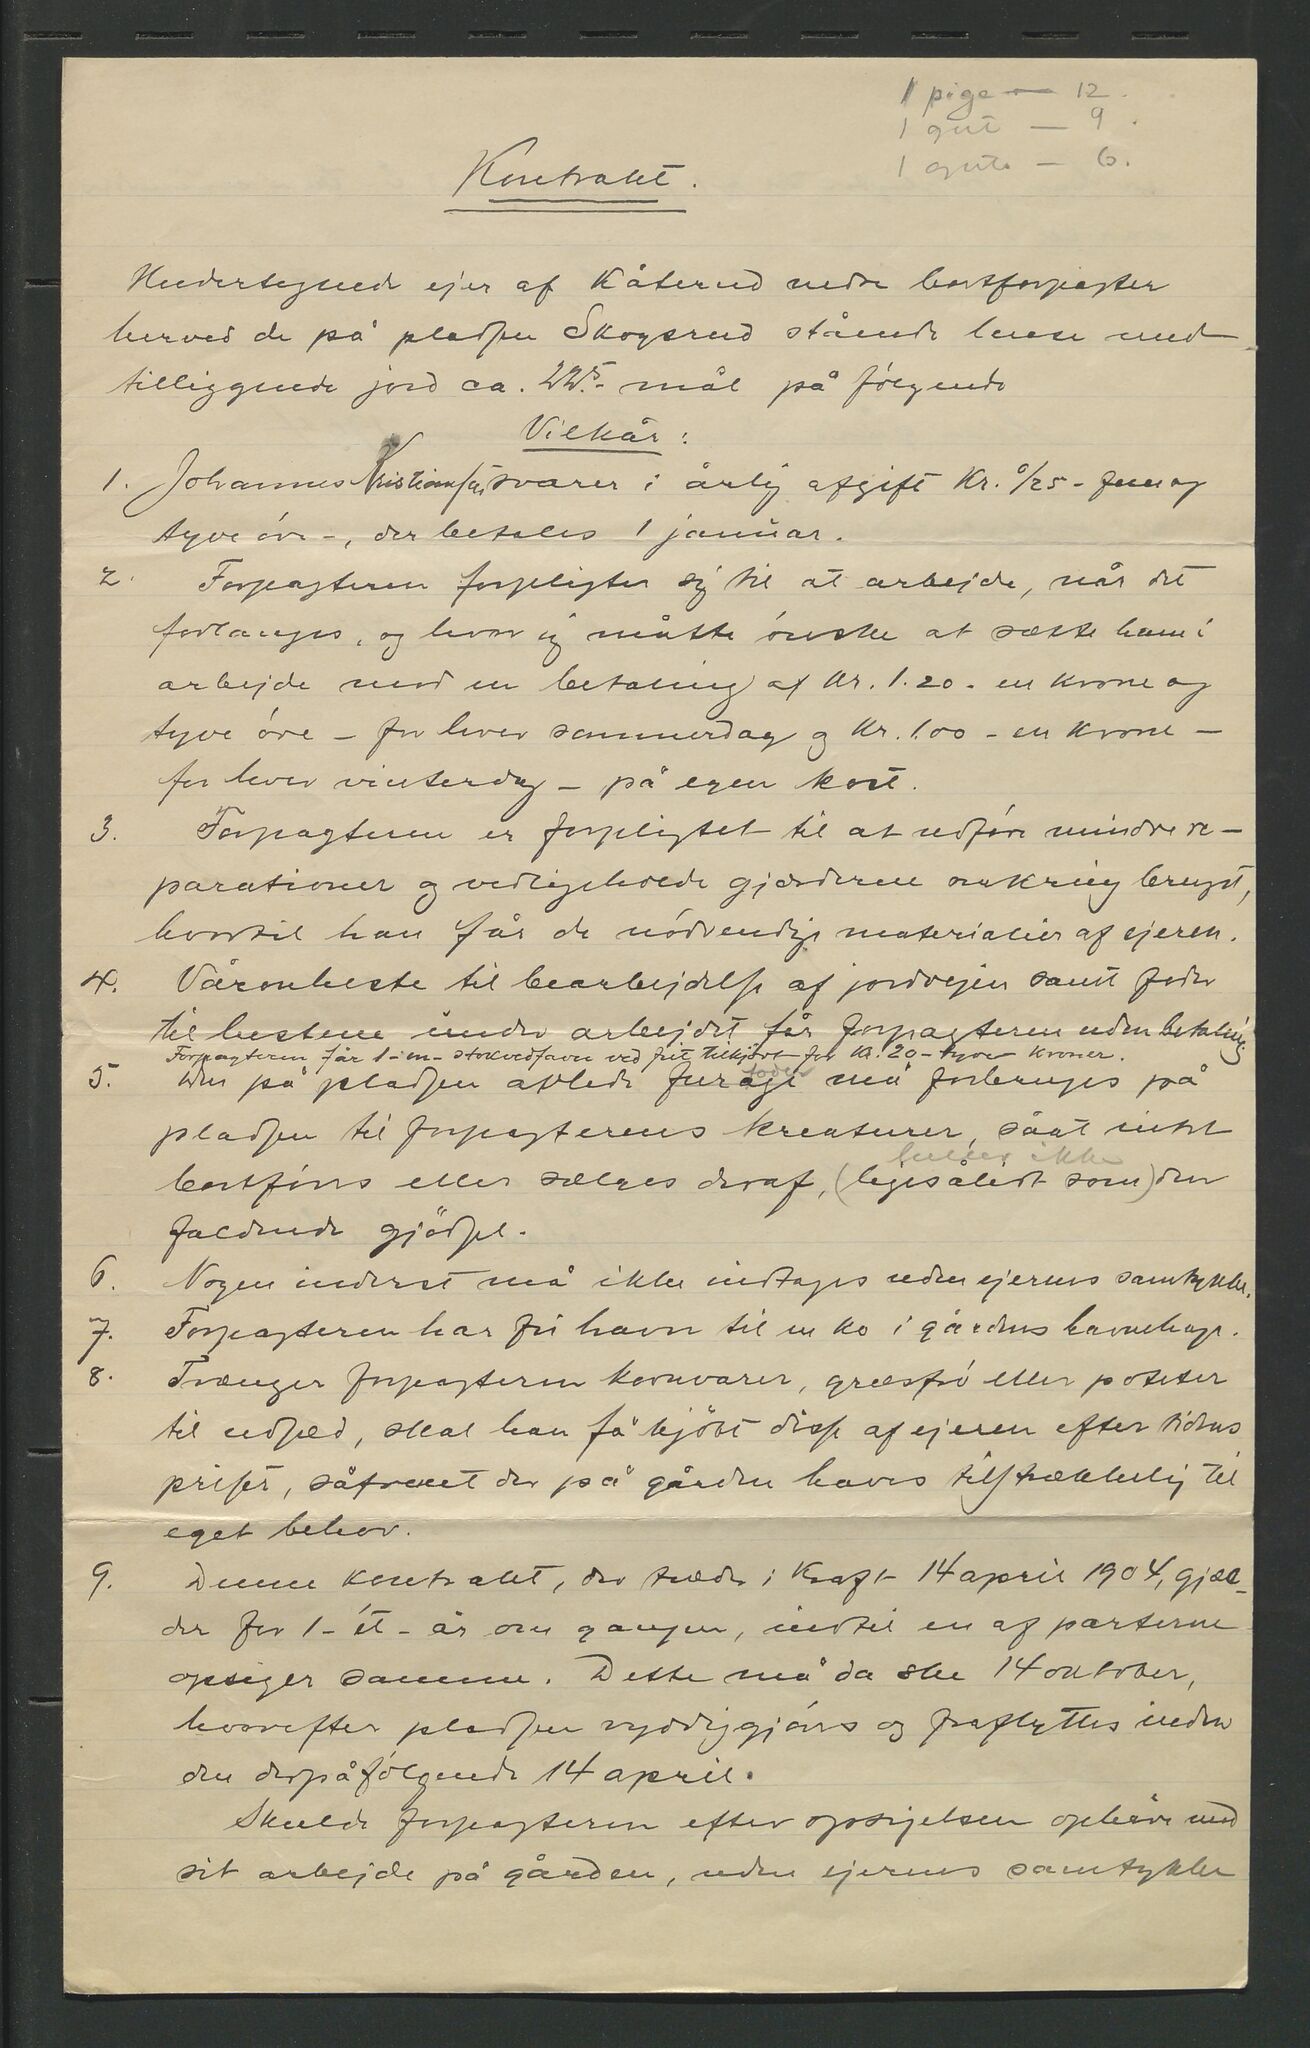 1 pige — 12.
1 gut — 9.
1 gut — 6.
Kontrakt.
Undertegnede ejer af Kåterud nedre bortforpagter
herved de på pladsen Skogsrud stående huse med
tilliggende jord ca. 22.5 - mål på følgende
Vilkår:
1. Johannes Kristiansen svarer i årlig afgift Kr. /25 - fem og
tyve öre -, der betales 1 januar.
2. Forpagteren forpligter sig til at arbejde, når det
forlanges, og hvor jeg måtte önske at sætte ham i
arbejde mod en betaling af Kr. 1.20 - en krone og
tyve öre - for hver sommerdag og Kr. 1.00 - en krone -
for hver vinterdag - på egen kost.
3. Forpagteren er forpligtet til at udföre mindre re-
parationer og vedligeholde gjærderne omkring bruget,
hvortil han får de nödvendige materialier af ejeren.
4. Våronheste til bearbejdelse af jordvejen samt foder
til hestene under arbejdet får forpagteren uden betaling.
Forpagteren får 1 - en - stokvedfavn ved frit tilkjört for Kr. 20 - tyve kroner.
5. Den på pladsen avlede furage må forbruges på
foder
pladsen til forpagterens kreaturer, såat intet
heller ikke
bortföres eller sælges deraf, (ligesålidt som) den
faldende gjödsel.
6. Nogen inderst må ikke indtages uden ejerens samtykke.
7. Forpagteren har fri havn til en ko i gårdens havnehage.
8. Trænger forpagteren kornvarer, græsfrö eller poteter
til udsæd, skal han få kjöbt disse af ejeren efter tidens
priser, såfremt der på gården haves tilstrækkelig til
eget behov.
9. Denne kontrakt, der træder i Kraft 14 april 1904, gjæl-
der for 1 - ét - år om gangen, indtil en af parterne
opsiger samme. Dette må da ske 14 oktober,
hvorefter pladsen ryddiggjöres og fraflyttes inden
den derpåfölgende 14 april.
Skulde forpagteren efter opsigelsen ophöre med
sit arbejde på gården, uden ejerens samtykke